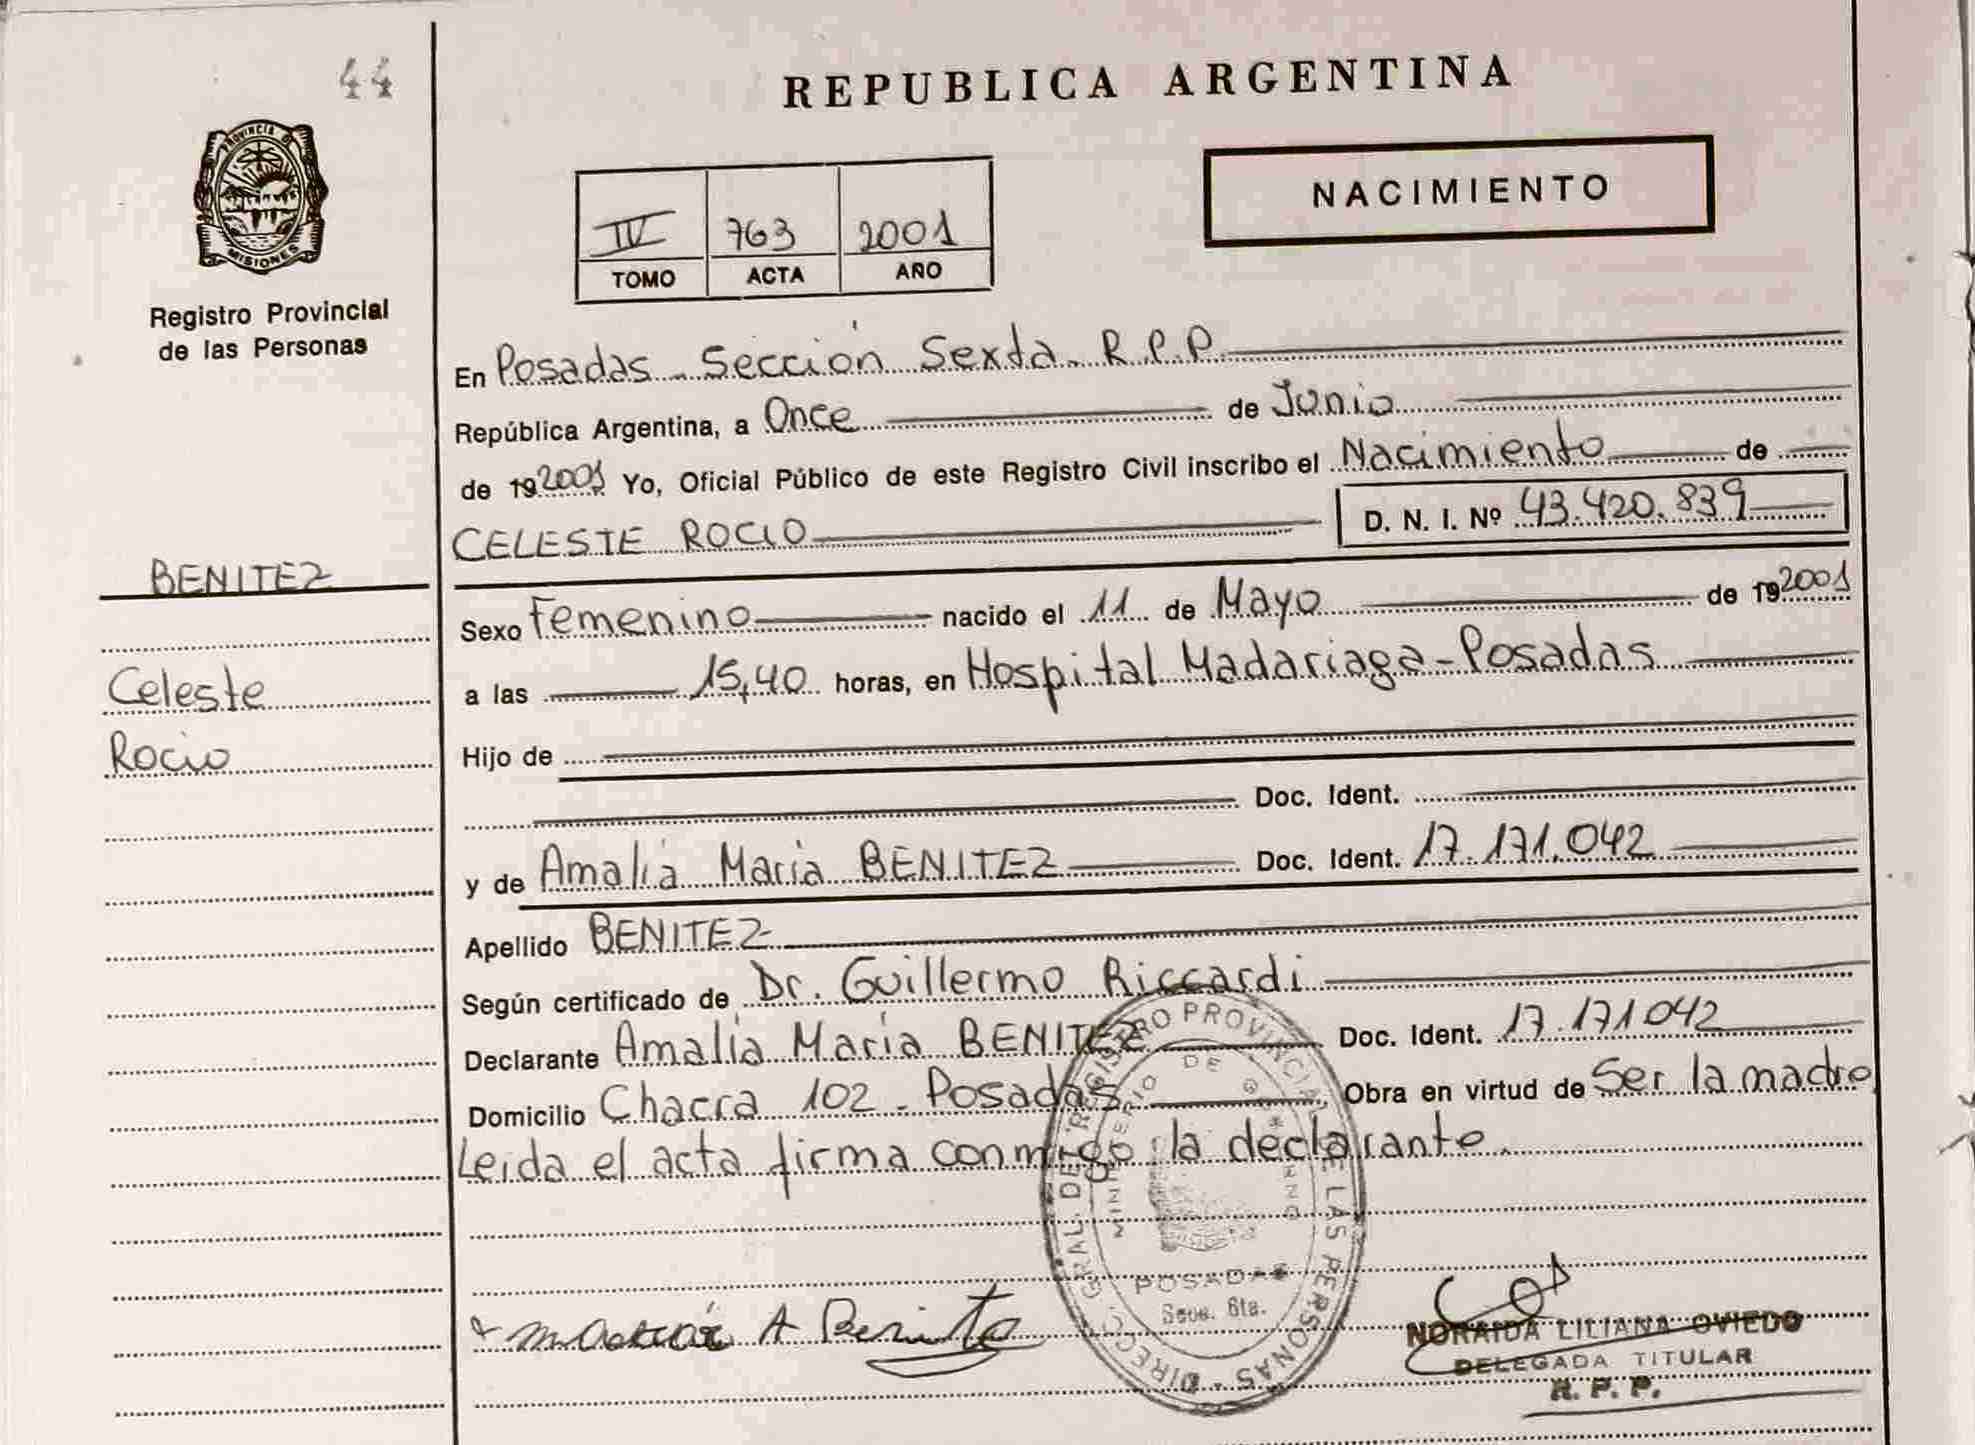 44
REPUBLICA ARGENTINA
PROVINCIA DE
MISIONES
NACIMIENTO
IV 763 2001
TOMO ACTA AÑO
Registro Provincial
de las Personas
En Posadas - Sección Sexta - R.P.P.
República Argentina, a Once de Junio
de 192001 Yo, Oficial Público de este Registro Civil inscribo el Nacimiento de
CELESTE ROCIO D. N. I. Nº 43.420.839
BENITEZ
Sexo Femenino nacido el 11 de Mayo de 192001
Celeste
a las 15,40 horas, en Hospital Madariaga - Posadas
Rocio
Hijo de
Doc. Ident.
y de Amalia Maria BENITEZ Doc. Ident. 17.171.042
Apellido BENITEZ
Según certificado de Dr. Guillermo Riccardi
Declarante Amalia Maria BENITEZ Doc. Ident. 17.171042
Domicilio Chacra 102 - Posadas Obra en virtud de Ser la madre
Leida el acta firma conmigo la declarante.
DIREC. GRAL. DEL REGISTRO PROVINCIAL DE LAS PERSONAS
MINISTERIO DE GOBIERNO
POSADAS
Secc. 6ta.
A Benite
NORAIDA LILIANA OVIEDO
DELEGADA TITULAR
R. P. P.